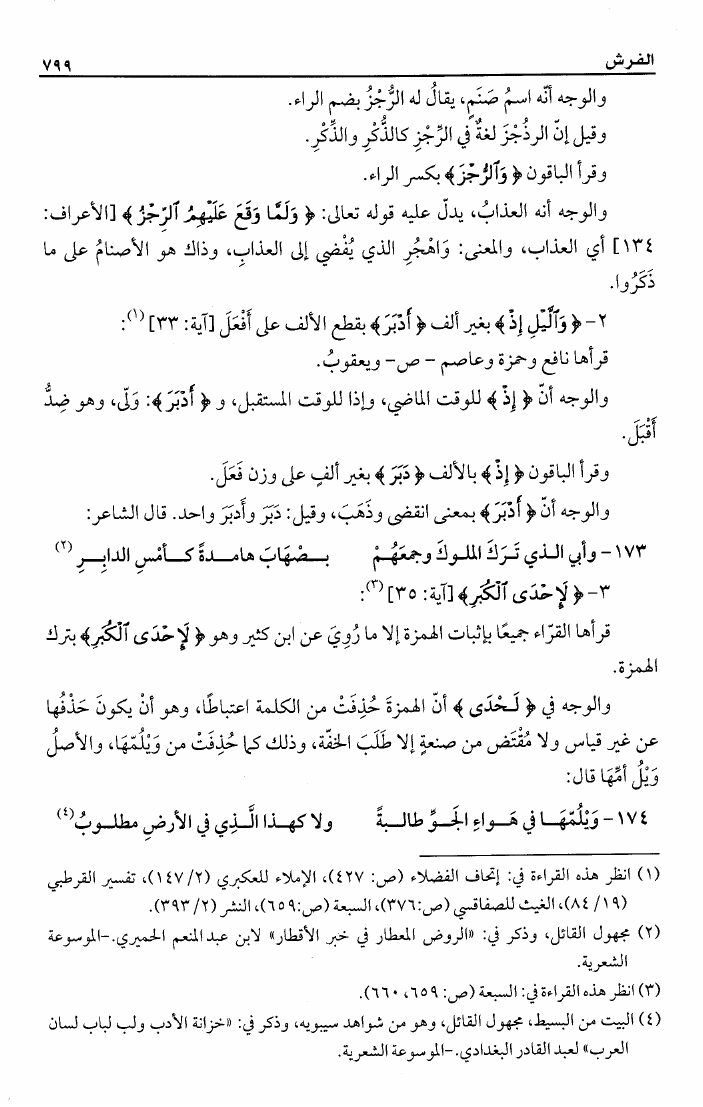 الفرش ٧٩٩
والوجه أنّه اسمُ صَنَمٍ، يقالُ له الرُّجْزُ بضم الراء.
وقيل إنّ الرذُجْزَ لغةٌ في الرِّجْزِ كالذُّكْرِ والذِّكْرِ.
وقرأ الباقون ﴿ وَٱلرُّجْزَ ﴾ بكسر الراء.
والوجه أنه العذابُ، يدلّ عليه قوله تعالى: ﴿ وَلَمَّا وَقَعَ عَلَيْهِمُ ٱلرِّجْزُ ﴾ [الأعراف:
١٣٤] أي العذاب، والمعنى: وَاهْجُرِ الذي يُفْضي إلى العذابِ، وذاك هو الأصنامُ على ما
ذَكَرُوا.
٢- ﴿ وَٱلَّيْلِ إِذْ ﴾ بغير ألف ﴿ أَدْبَرَ ﴾ بقطع الألف على أَفْعَلَ [آية: ٣٣] (١):
قرأها نافع وحمزة وعاصم - ص- ويعقوبُ.
والوجه أنّ ﴿ إِذْ ﴾ للوقت الماضي، وإذا للوقت المستقبل، و ﴿ أَدْبَرَ ﴾: وَلّى، وهو ضِدُّ
أَقْبَلَ.
وقرأ الباقون ﴿ إِذْ ﴾ بالألف ﴿ دَبَرَ ﴾ بغير ألفٍ على وزن فَعَلَ.
والوجه أنّ ﴿ أَدْبَرَ ﴾ بمعنى انقضى وذَهَبَ، وقيل: دَبَرَ وأَدبَرَ واحد. قال الشاعر:
١٧٣- وأبي الـذي تَـرَكَ الملـوكَ وجمعَهُـمْ بـصُهَابَ هامـدةً كـأمْسِ الدابـرِ (٢)
٣- ﴿ لَإِحْدَى ٱلْكُبَرِ ﴾ [آية: ٣٥] (٣):
قرأها القرّاء جميعًا بإثبات الهمزة إلا ما رُوِيَ عن ابن كثير وهو ﴿ لَإِحْدَى ٱلْكُبَرِ ﴾ بترك
الهمزة.
والوجه في ﴿ لَـحْدَى ﴾ أنّ الهمزةَ حُذِفَتْ من الكلمة اعتباطًا، وهو أنْ يكونَ حَذْفُها
عن غير قياس ولا مُقْتَض من صنعةٍ إلا طَلَبَ الخفّة، وذلك كما حُذِفَتْ من وَيْلُمّهَا، والأصلُ
وَيْلُ أمِّهَا قال:
١٧٤- وَيْلُمّهَـا في هَـواءِ الجَـوِّ طالـبـةً ولا كهـذا الَّـذِي في الأرضِ مطلـوبُ (٤)
(١) انظر هذه القراءة في: إتحاف الفضلاء (ص: ٤٢٧)، الإملاء للعكبري (٢/ ١٤٧)، تفسير القرطبي
(١٩/ ٨٤)، الغيث للصفاقسي (ص:٣٧٦)، السبعة (ص:٦٥٩)، النشر (٢/ ٣٩٣).
(٢) مجهول القائل، وذكر في: «الروض المعطار في خبر الأقطار» لابن عبد المنعم الحميري.-الموسوعة
الشعرية.
(٣) انظر هذه القراءة في: السبعة (ص: ٦٥٩، ٦٦٠).
(٤) البيت من البسيط، مجهول القائل، وهو من شواهد سيبويه، وذكر في: «خزانة الأدب ولب لباب لسان
العرب» لعبد القادر البغدادي.-الموسوعة الشعرية.